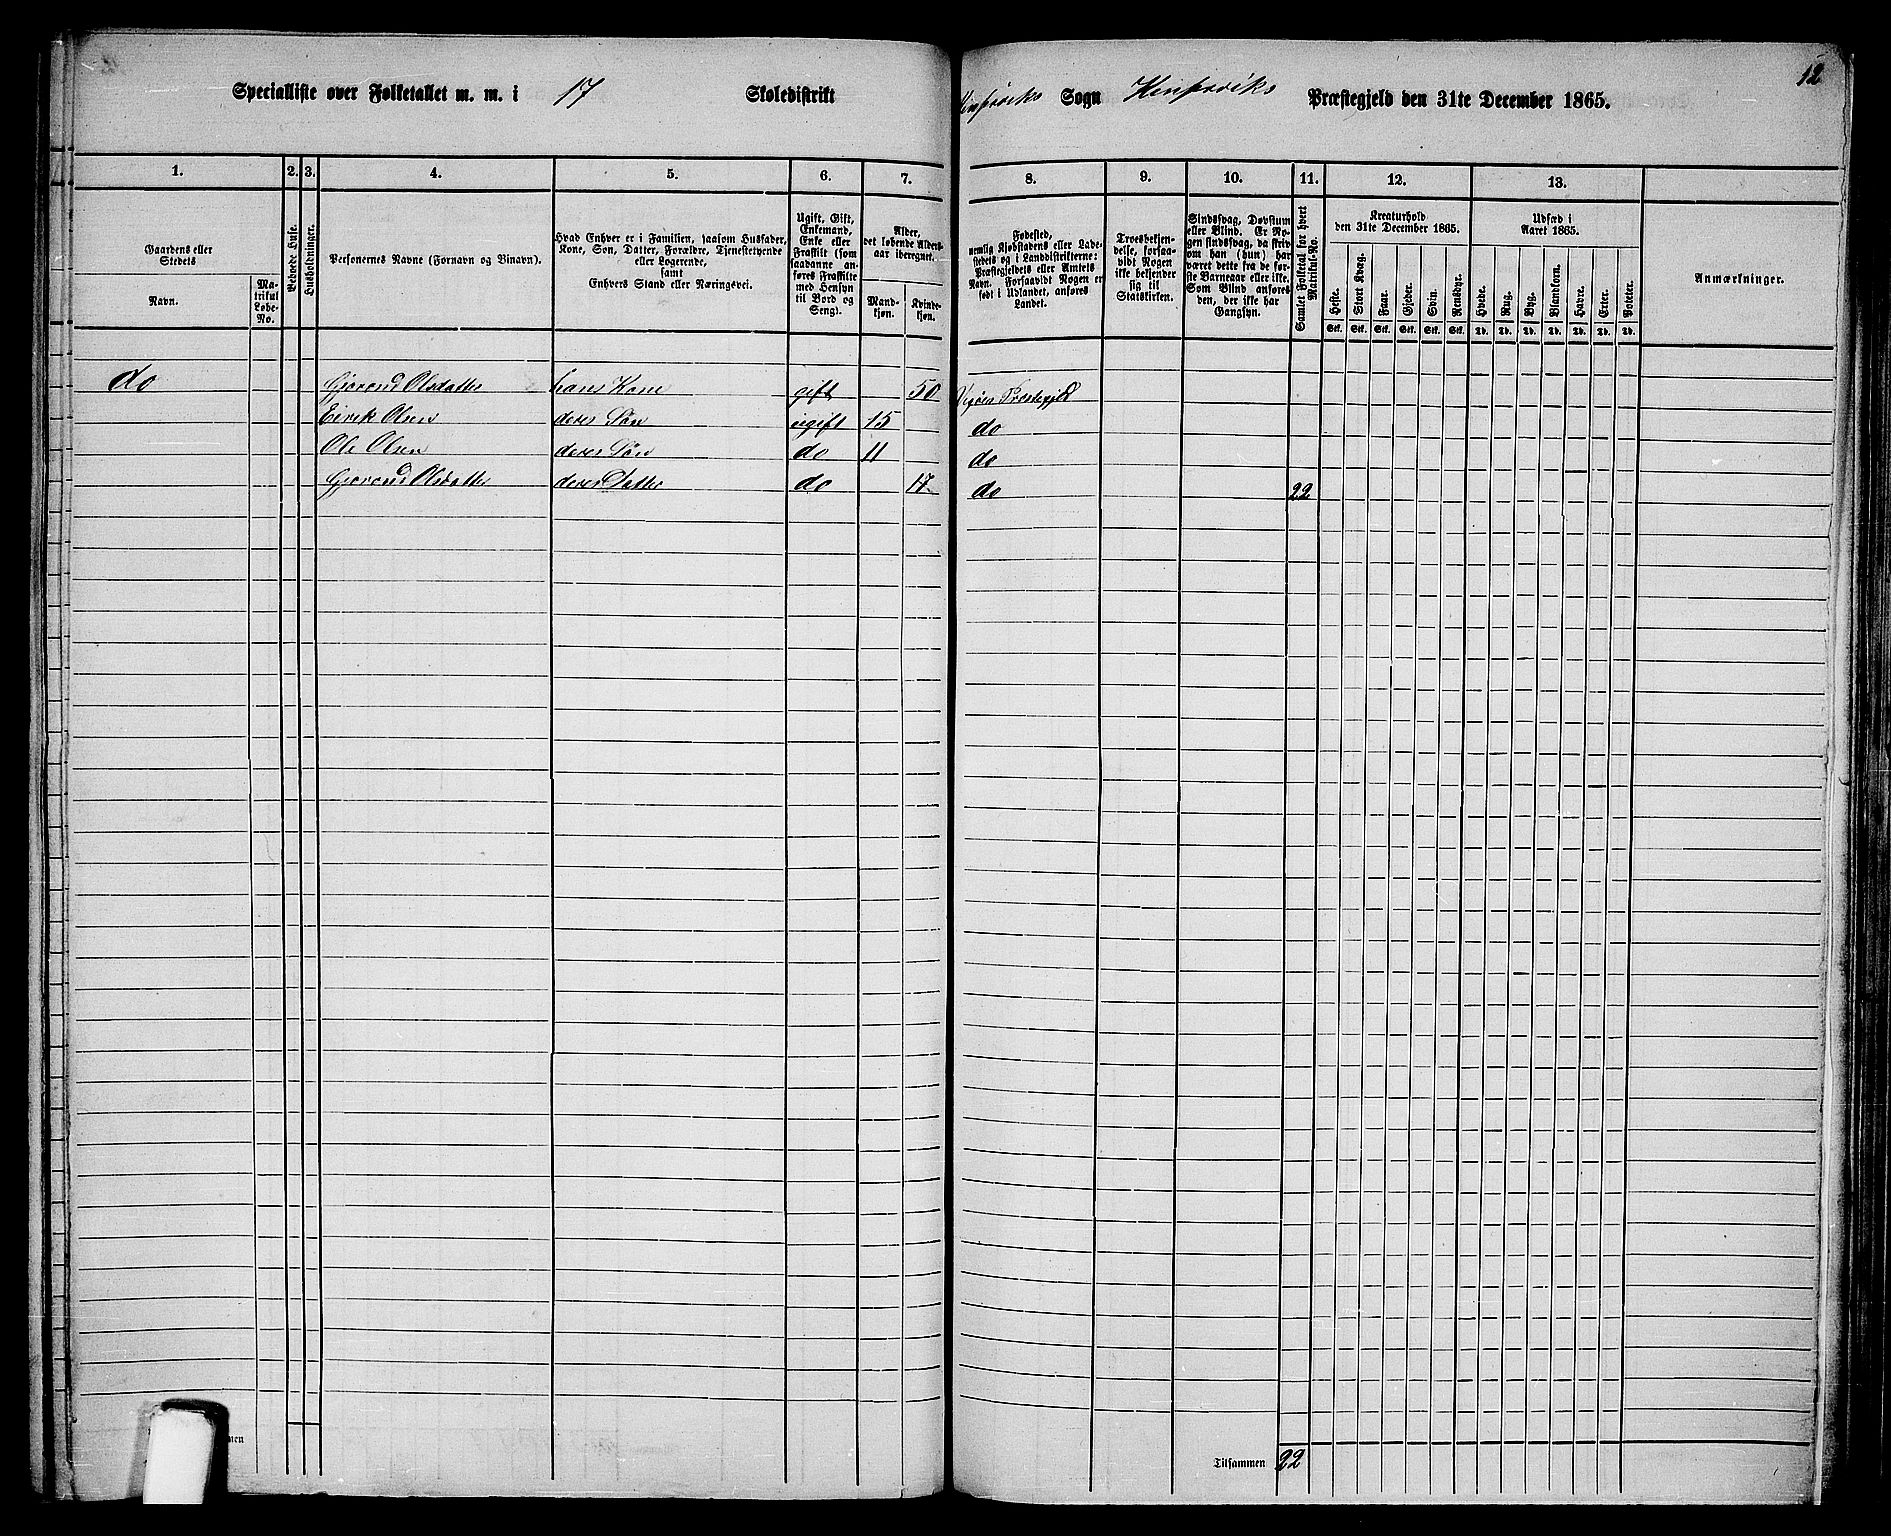 12
Specialliste over Folketallet m. m. i 17 Skoledistrikt Kinservik Sogn Kinserviks Præstegjeld den 31te December 1865.
1. 2. 3. 4. 5. 6. 7. 8. 9. 10. 11. 12. 13.
Gaardens eller Stedets
Navn.
Matrikul Løbe-No.
Beboede Huse.
Husholdninger.
Personernes Navne (Fornavn og Binavn).
Hvad Enhver er i Familien, saasom Husfader,
Kone, Søn, Datter, Forældre, Tjenestetyende
eller Logerende,
samt
Enhvers Stand eller Næringsvei.
Ugift, Gift,
Enkemand,
Enke eller
Fraskilt (som
saadanne an-
føres Fraskilte
med Hensyn
til Bord og
Seng).
Alder,
det løbende Alders-
aar iberegnet.
Mand-
kjøn.
Kvinde-
kjøn.
Fødested,
nemlig Kjøbstadens eller Lade-
stedets og i Landdistrikterne:
Præstegjeldets eller Amtets
Navn. Forsaavidt Nogen er
født i Udlandet, anføres
Landet.
Troesbekjen-
delse, forsaa-
vidt Nogen
ikke bekjender
sig til
Statskirken.
Sindssvag, Døvstum
eller Blind. Er No-
gen sindssvag, da skriv
om han (hun) har
været dette fra de før-
ste Barneaar eller ikke.
Som Blind anføres
den, der ikke har
Gangsyn.
Samlet Folketal for hvert
Matrikul-No.
Kreaturhold
den 31te December 1865.
Heste. Stort Kvæg. Faar. Gjeder. Svin. Rensdyr.
Stk. Stk. Stk. Stk. Stk. Stk.
Udsæd i
Aaret 1865.
Hvede. Rug. Byg. Blandkorn. Havre. Erter. Poteter.
Td. Td. Td. Td. Td. Td. Td.
Anmærkninger.
do Olsdatter hans Kone gift 50 Præstegjeld
Eirik Olsen deres Søn ugift 15 do
Ole Olsen deres Søn do 11 do
Olsdatter deres Datter do 17 do 22
men
Tilsammen 22